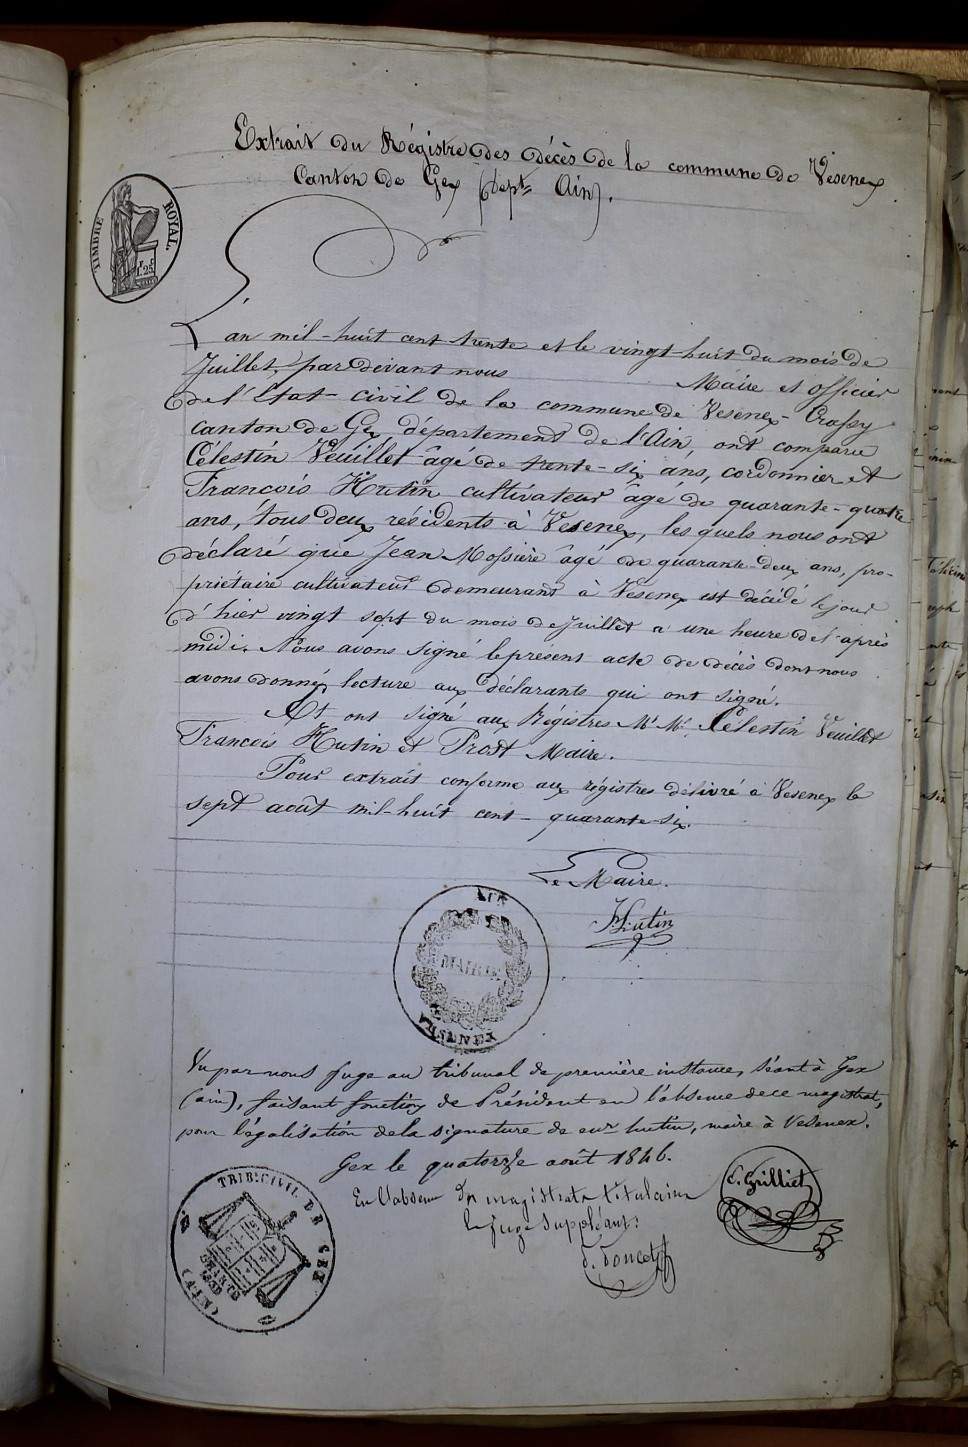 Extrait du Régistre des décès de la commune de Vesenex
Canton de Gex (dépt. Ain).
TIMBRE ROYAL.
1f. 25c
L'an mil-huit cent trente et le vingt-huit du mois de
Juillet, par devant nous Maire et officier
de l'Etat-civil de la commune de Vesenex-Crassy
canton de Gex département de l'Ain, ont comparu
Célestin Veuillet âgé de trente-six ans, cordonnier et
François Hutin cultivateur âgé de quarante-quatre
ans, tous deux résidents à Vesenex, les quels nous ont
déclaré que Jean Mossière âgé de quarante-deux ans, pro-
priétaire cultivateur demeurant à Vesenex est décédé le jour
d'hier vingt sept du mois de Juillet a une heure de l'après
midi. Nous avons signé le présent acte de décès dont nous
avons donné lecture aux déclarants qui ont signé.
Et ont signé aux Régistres Mr. Mr. Célestin Veuillet
François Hutin et Prost Maire.
Pour extrait conforme aux régistres délivré à Vesenex le
sept août mil-huit cent-quarante-six.
Le Maire.
Hutin
MAIRIE
VESENEX
Vu par nous Juge au tribunal de première instance, séant à Gex
(ain), faisant fonction de Président en l'absence de ce magistrat,
pour légalisation de la signature de mr hutin, maire à Vesenex.
Gex le quatorze août 1846.
TRIB. CIVIL DE GEX
(AIN)
CHARTE
1830
En l'absence des magistrats titulaires
le Juge Suppléant: